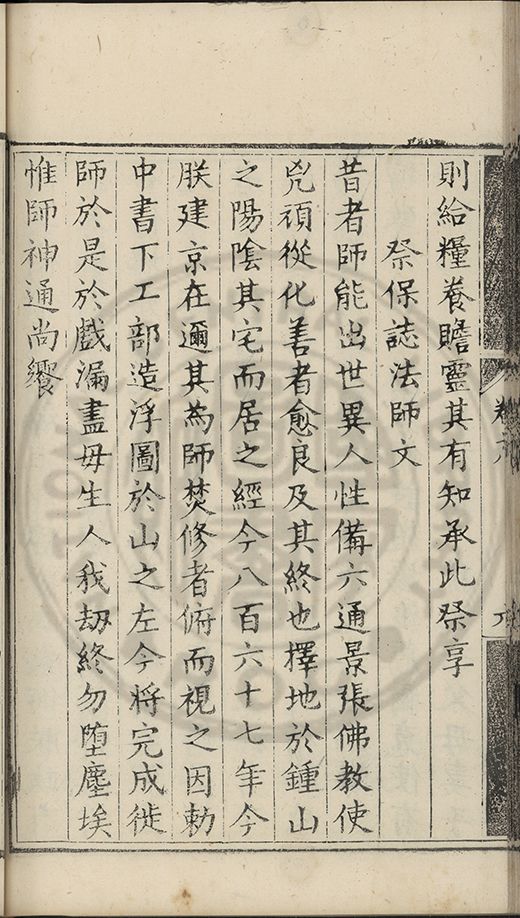 則給糧養贍靈其有知承此祭享
祭保誌法師文
昔者師能出世異人性備六通景張佛教使
兇頑從化善者愈良及其終也擇地於鍾山
之陽陰其宅而居之經今八百六十七年今
朕建京在邇其為師焚修者俯而視之因勅
中書下工部造浮圖於山之左今將完成徙
師於是於戲漏盡毋生人我劫終勿堕塵埃
惟師神通尚饗